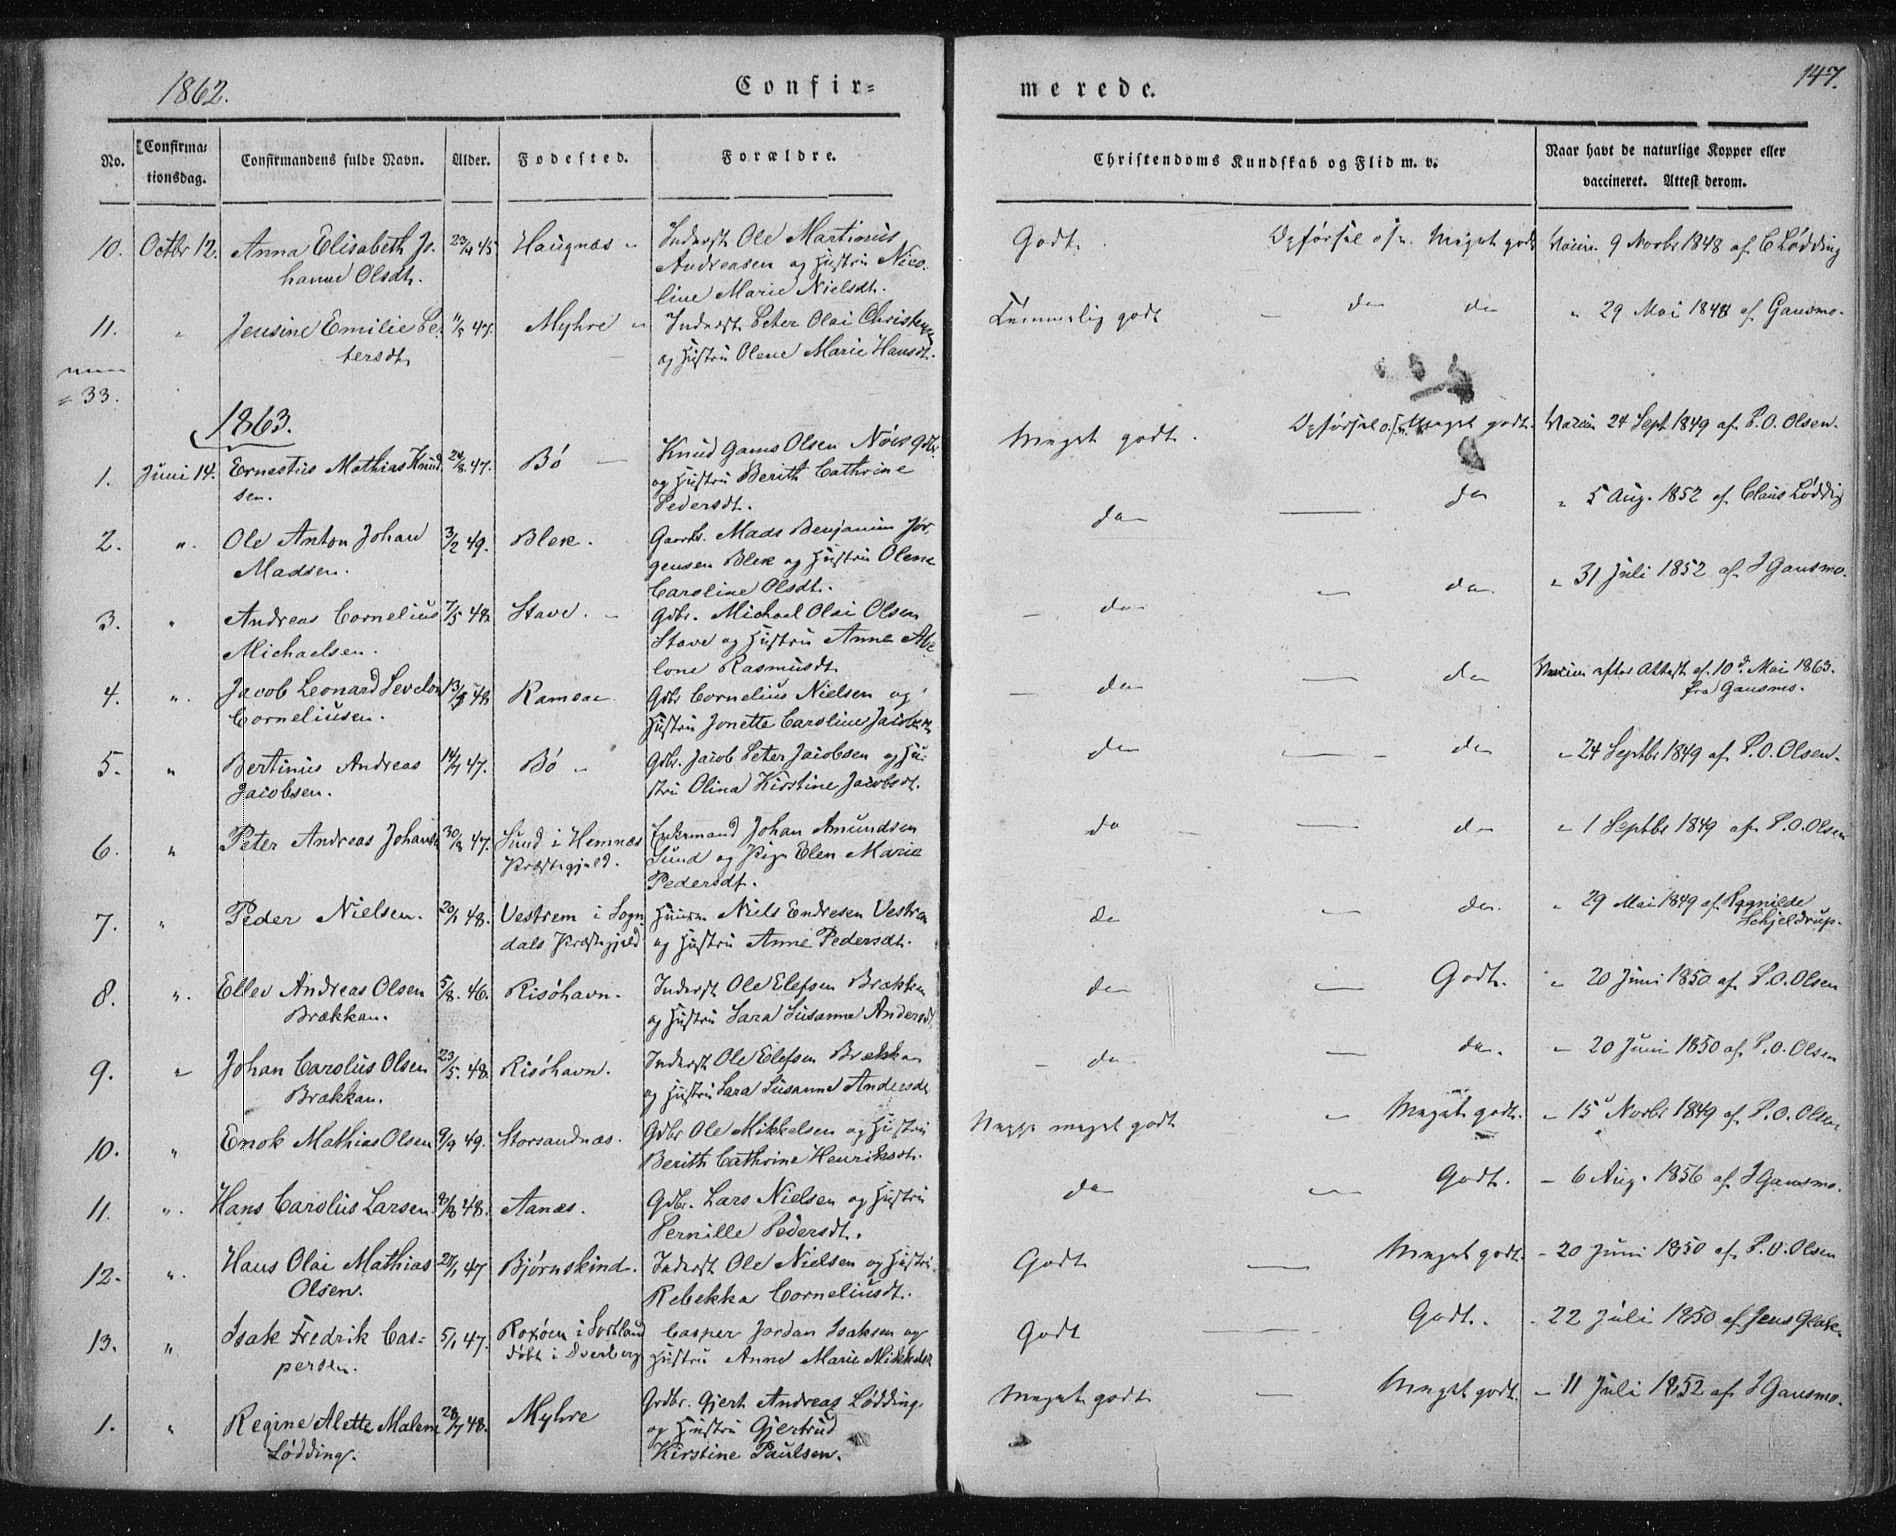 1862. Confir= merede. 147.
No. Confirma- tionsdag. Confirmandens fulde Navn. Alder. Fodested. Forældre. Christendoms Kundskab og Flid m. v. Naar havt de naturlige Kopper eller vaccineret. Attest derom.
10. Octbr 12. Anna Elisabeth Jo- 45 Haugnæs Inderst Ole Martinus Godt. Opførsel Meget godt 9 Novbr 1848 af C Lødding
hanne Olsdt. Andreasen og Hustru Nico-
line Marie Nielsdt.
11. " Jensine Emilie Pe- 47. Myhre Inderst Peter Olai Christensen Temmelig godt do do " 29 Mai 1848 af Gausmo.
tersdt. og Hustru Olene Marie Hansdt.
33.
1863.
1. Juni 14. Ernestus Mathias Knud- 24/8 47. Bø Knud Gams Olsen Gdbr. Meget godt. Opførsel Meget godt. 24 Sept 1849 af P. O. Olsen.
sen. og Hustru Berith Cathrine
Pedersdt.
2. " Ole Anton Johan 3/2 49. Blek. Mads Benjamin Jør- do do " 5 Aug. 1852 af Claus Lødding
Madsen. gensen Blek og Hustru Olene
Caroline Olsdt.
3. " Andreas Cornelius 7/5 48. Stave. Gdbr. Michael Olai Olsen do do " 31 Juli 1852 af J Gausmo.
Michaelsen. Stave og Hustru Anna Abe-
lone Rasmusdt.
4. " Jacob Leonard 48 Ramsaa Gdbr Cornelius Nielsen og do do efter Attest af 10d Mai 1863.
Corneliusen. Hustru Jonette Caroline Jacobsen fra Gausmo.
5. " Bertinus Andreas 14/7 47. Bø Gdbr. Jacob Peter Jacobsen og Hu- do do " 24 Septbr 1849 af P. O. Olsen.
Jacobsen. stru Olina Kirstine Jacobsdt.
6. " Peter Andreas Johansen 30/8 47. Sund i Hemnæs Enkemand Johan Amundsen do do " 1 Septbr 1849 af P. O. Olsen
Præstegjeld. Sund og Pige Elen Marie
Pedersdt.
7. " Peder Nielsen. 20/1 48. Vestrem i Sogn- Niels Endresen Vestrem do do. " 29 Mai 1849 af Ragnilde
dals Præstegjeld og Hustru Anne Pedersdt. Schjeldrup.
8. " Ellev Andreas Olsen 5/8. 46. Risøhavn. Inderst Ole Elefsen Brækkan do Godt. " 20 Juni 1850 af P. O. Olsen
Brækkan. og Hustru Sara Susanna Andersdt.
9. " Johan Carolus Olsen 23/5. 48. Risøhavn. Inderst Ole Elefsen Brækkan do do. " 20 Juni 1850 af P. O. Olsen
Brækkan. og Hustru Sara Susanna Andersdt
10. " Enok Mathias Olsen 9/9 49. Storsandnæs. Gdbr Ole Mikkelsen og Hustru meget godt Meget godt. " 15 Novbr 1849 af P. O. Olsen
Berith Cathrine Henriksdt.
11. " Hans Carolus Larsen. 48. Aanæs. Gdbr. Lars Nielsen og Hustru do Godt. " 6 Aug. 1856 af J Gausmo.
Pernille Pedersdt.
12. " Hans Olai Mathias 47 Bjørnskind. Inderst Ole Nielsen og Hustru Godt Meget godt. " 20 Juni 1850 af P. O. Olsen
Olsen. Rebekka Corneliusdt.
13. " Isak Fredrik Cas= 5/1 47. i Sortland Casper Jordan Isaksen og Godt Godt. " 22 Juli 1850 af Jens
persen. døbt i Dverberg Hustru Anne Marie Mikkelsdt
1. " Regine Alette Malene 28/7 48. Myhre Gdbr. Gjert Andreas Lødding Meget godt Meget godt. " 11 Juli 1852 af J Gausmo.
Lødding. og Hustru Gjertrud
Kirstine Paulsen.